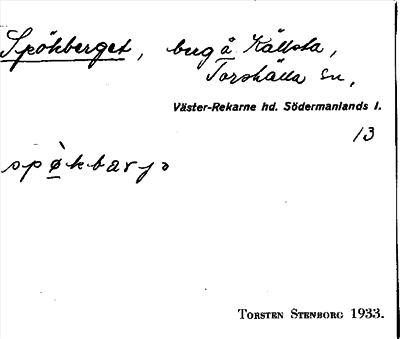 Spökberget, berg å Källsta,
Torshälla sn,
Väster-Rekarne hd. Södermanlands l.
13
spø̀kbarjə
TORSTEN STENBORG 1933.